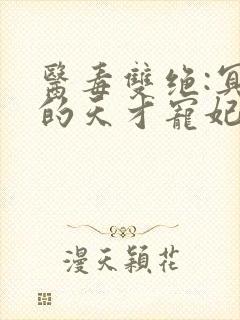 醫毒雙绝:冥
的天才寵妃
漫天穎花